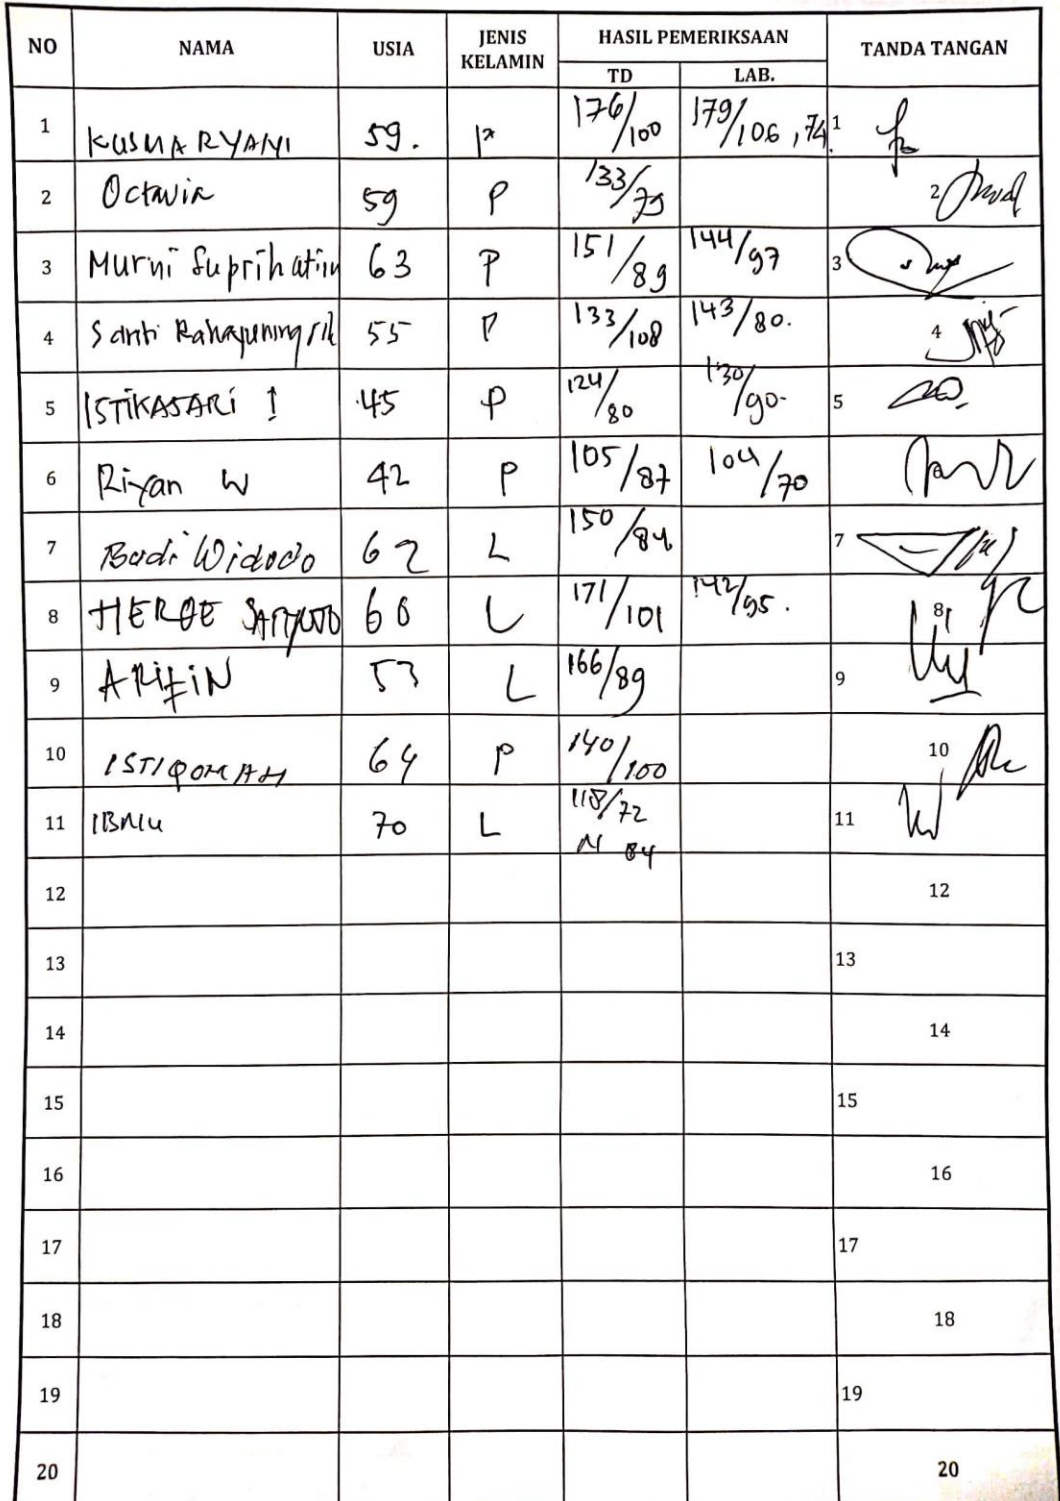 NO NAMA USIA JENIS KELAMIN HASIL PEMERIKSAAN TANDA TANGAN
TD LAB.
1 KUSMARYANI 59. P 176/100 179/106, 74. 1
2 Octavia 59 P 133/79 2
3 Murni Suprihatin 63 P 151/89 144/97 3
4 Santi Rahayuningsih 55 P 133/108 143/80. 4
5 ISTIKASARI I 45 P 124/80 130/90- 5
6 Riyan W 42 P 105/87 104/70 6
7 Budi Widodo 62 L 150/84 7
8 60 L 171/101 142/95. 8
9 ARIFIN 53 L 166/89 9
10 ISTIQOMAH 64 P 140/100 10
11 IBNU 70 L 118/72 11
N 84
12 12
13 13
14 14
15 15
16 16
17 17
18 18
19 19
20 20